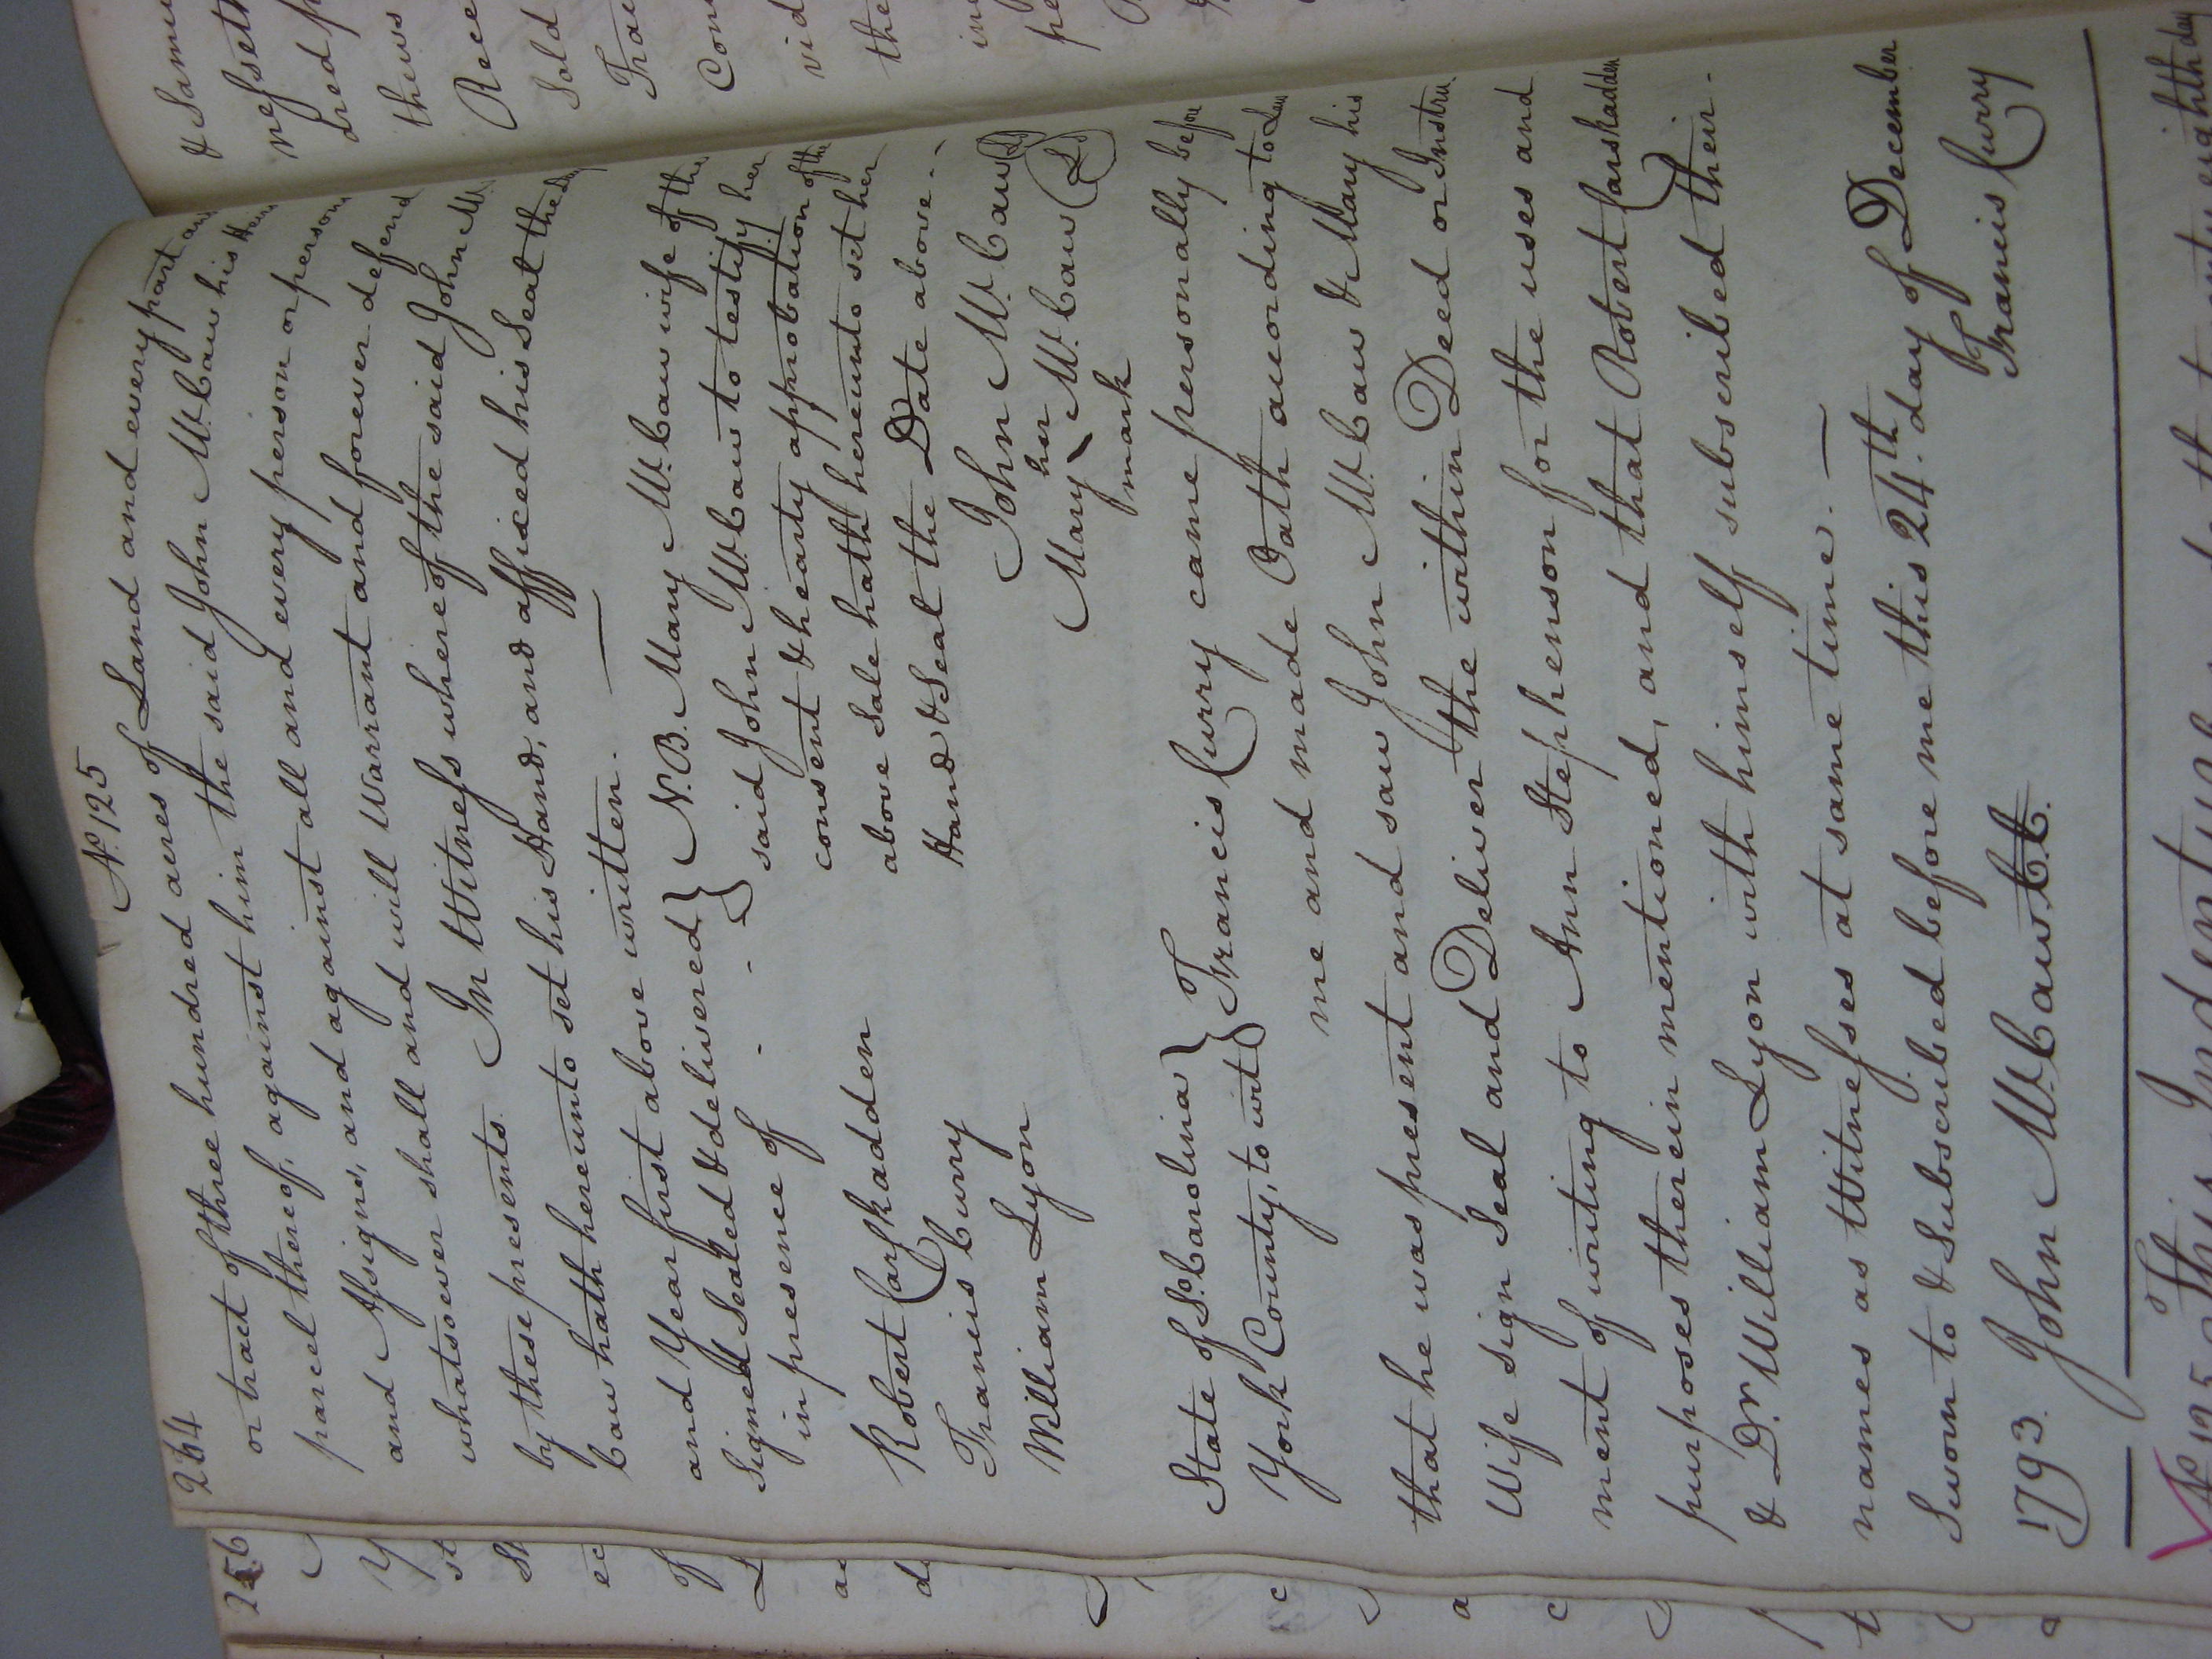 264
No. 125
or tract of three hundred acres of Land and every part and
parcel thereof, against him the said John McCaw his Heirs
and Assigns, and against all and every person or persons
whatsoever shall and will Warrant and forever defend
by these presents. In Witness whereof the said John Mc.
Caw hath hereunto set his Hand, and affixed his Seal the Day
and Year first above written.
Signed Sealed & delivered } N.B. Mary McCaw wife of the
in presence of - - } said John McCaw to testify her
consent & hearty approbation of the
Robert Carskadden above Sale hath hereunto set her
Francis Curry Hand & Seal the Date above --
William Lyon John McCaw (LS)
Mary her McCaw (LS)
mark
State of So. Carolina } Francis Curry came personally before
York County, to wit } me and made Oath according to Law
that he was present and saw John McCaw & Mary his
Wife sign Seal and Deliver the within Deed or Instru
ment of writing to Ann Stephenson for the uses and
purposes therein mentioned, and that Robert Carskadden
& Dr. William Lyon with himself subscribed their -
names as Witnesses at same time. —
Sworn to & Subscribed before me this 24th. day of December
1793. John McCaw C.C. Francis Curry
256
& Samu
thews
Rece
Sold
Con
vid
the
No. 125 This Indenture